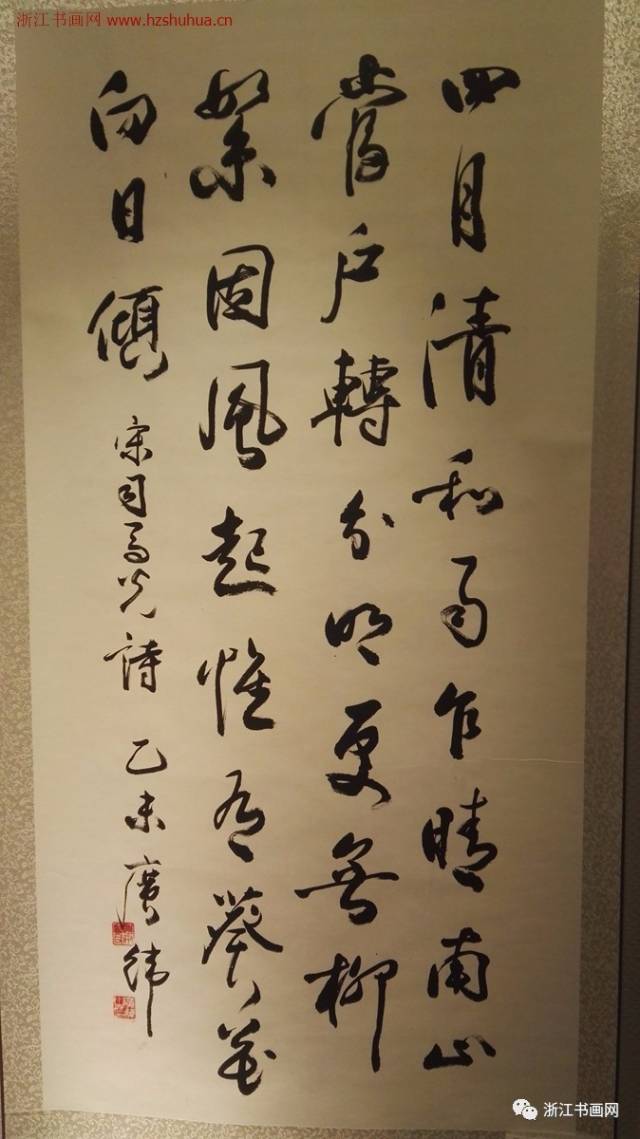 浙江书画网 www.hzshuhua.cn
四月清和雨乍晴南山
當户轉分明更無柳
絮因風起惟有葵花
向日傾 宋司馬光詩 乙未 廣緯
浙江书画网